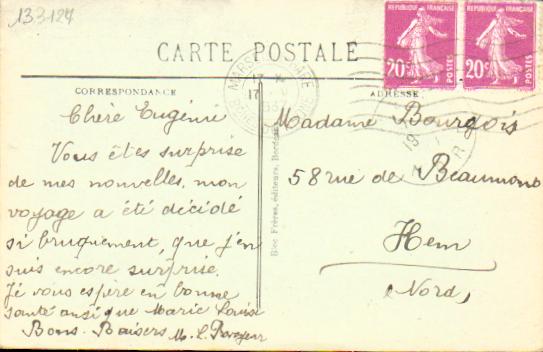 133127
REPUBLIQUE FRANÇAISE
20c POSTES
REPUBLIQUE FRANÇAISE
20c POSTES
CARTE POSTALE
CORRESPONDANCE
ADRESSE
Chère Eugénie
Vous êtes surprise
de mes nouvelles, mon
voyage a été décidé
si bruquement, que j'en
suis encore surprise.
Je vous espère en bonne
santé ansi que Marie Louise
Bons Baisers M. L.
Bloc Frères, éditeurs, Bordeaux
Madame Bourgois
58 rue de Beaumont
Hem
Nord,